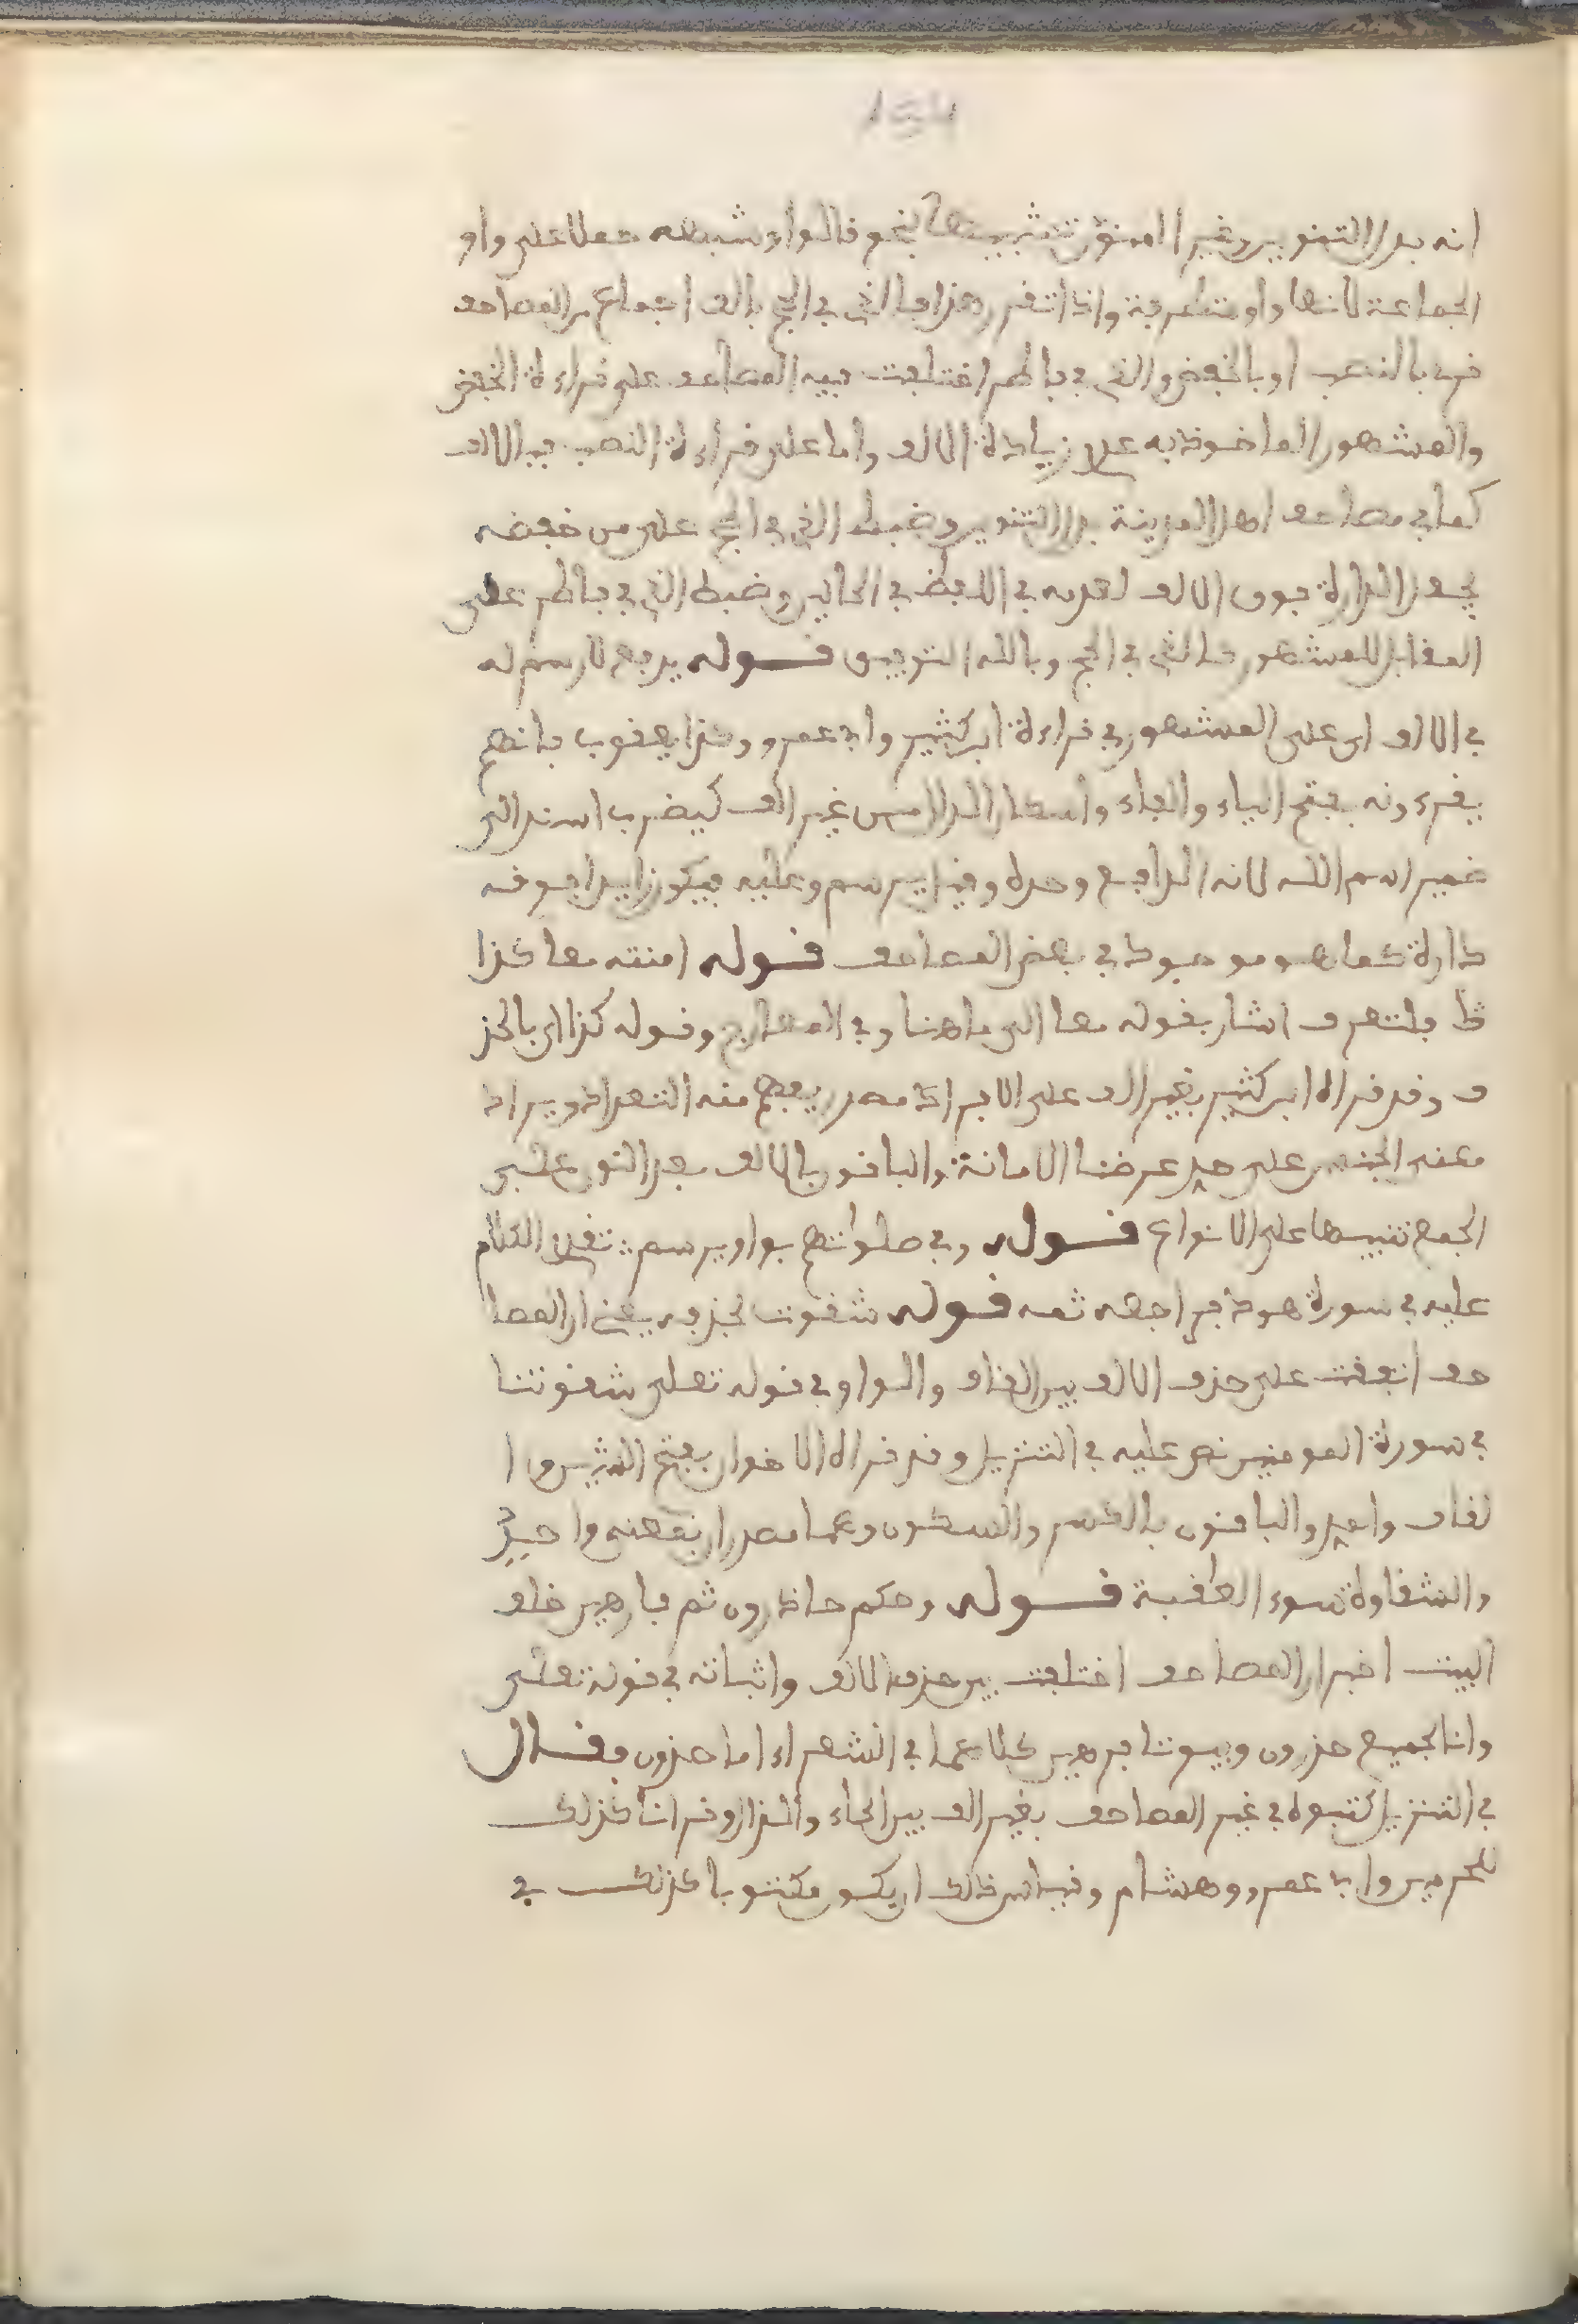 انه بدل التنوين وغير المنون تشبيها بنحو قالوا وشبهه حملا على واو
الجماعة لانها واو متطرفة واذا تقرر هذا فالذي في الحج بالف اجماع من المصاحف
قرئ بالنصب او بالخفض والذي في فاطر اختلفت فيه المصاحف على قراءة الخفض
والمشهور الماخوذ به عدم زيادة الالف واما على قراءة النصب فبالالف
كما في مصاحف اهل المدينة بدل التنوين وضبط الذي في الحج على من خفضه
بجعل الدارة فوق الالف لعدمه في اللفظ في الحالين وضبط الذي في فاطر على
المقابل للمشهور كالذي في الحج وبالله التوفيق قوله يدفع لا رسم له
في الالف اي على المشهور في قراءة ابن كثير وابي عمرو وكذا يعقوب فانهم
يقرءونه بفتح الياء والفاء واسكان الدال من غير الف كيضرب اسند الى
ضمير اسم الله لانه الدافع وحده وقيل يرسم وعليه فيكون زايدا فوقه
دارة كما هو موجود في بعض المصاحف قوله امنته معا كذا
قط فلتعرف اشار بقوله معا الى ما هنا وفي المعارج وقوله كذا اي بالحذ
ف وقد قراه ابن كثير بغير الف على الافراد مصدر يفهم منه التعدد ويراد
معنى الجنس على حد عرضنا الامانة والباقون بالالف بعد النون على
الجمع تنبيها على الانواع قوله وفي صلواتهم بواو يرسم تقدم الكلام
عليه في سورة هود فراجعه ثمه قوله شقوت بحذفه يعني ان المصا
حف اتفقت على حذف الالف بين القاف والواو في قوله تعلى شقوتنا
في سورة المومنين نص عليه في التنزيل وقد قراه الاخوان بفتح الشين وا
لقاف وامد والباقون بالكسر والسكون وهما مصدران بمعنى واحد
والشقاوة سوء العاقبة قوله وحكم حاذرون ثم فارهين خلف
البيت اخبر ان المصاحف اختلفت بين حذف الالف واثباته في قوله تعلى
وانا لجميع حذرون وبيوتا فرهين كلاهما في الشعراء اما حذرون فقال
في التنزيل كتبوه في غير المصاحف بغير الف بين الحاء والذال وقرانا كذلك
للحرميين وابي عمرو وهشام وقياس ذلك ان يكون مكتوبا كذلك في